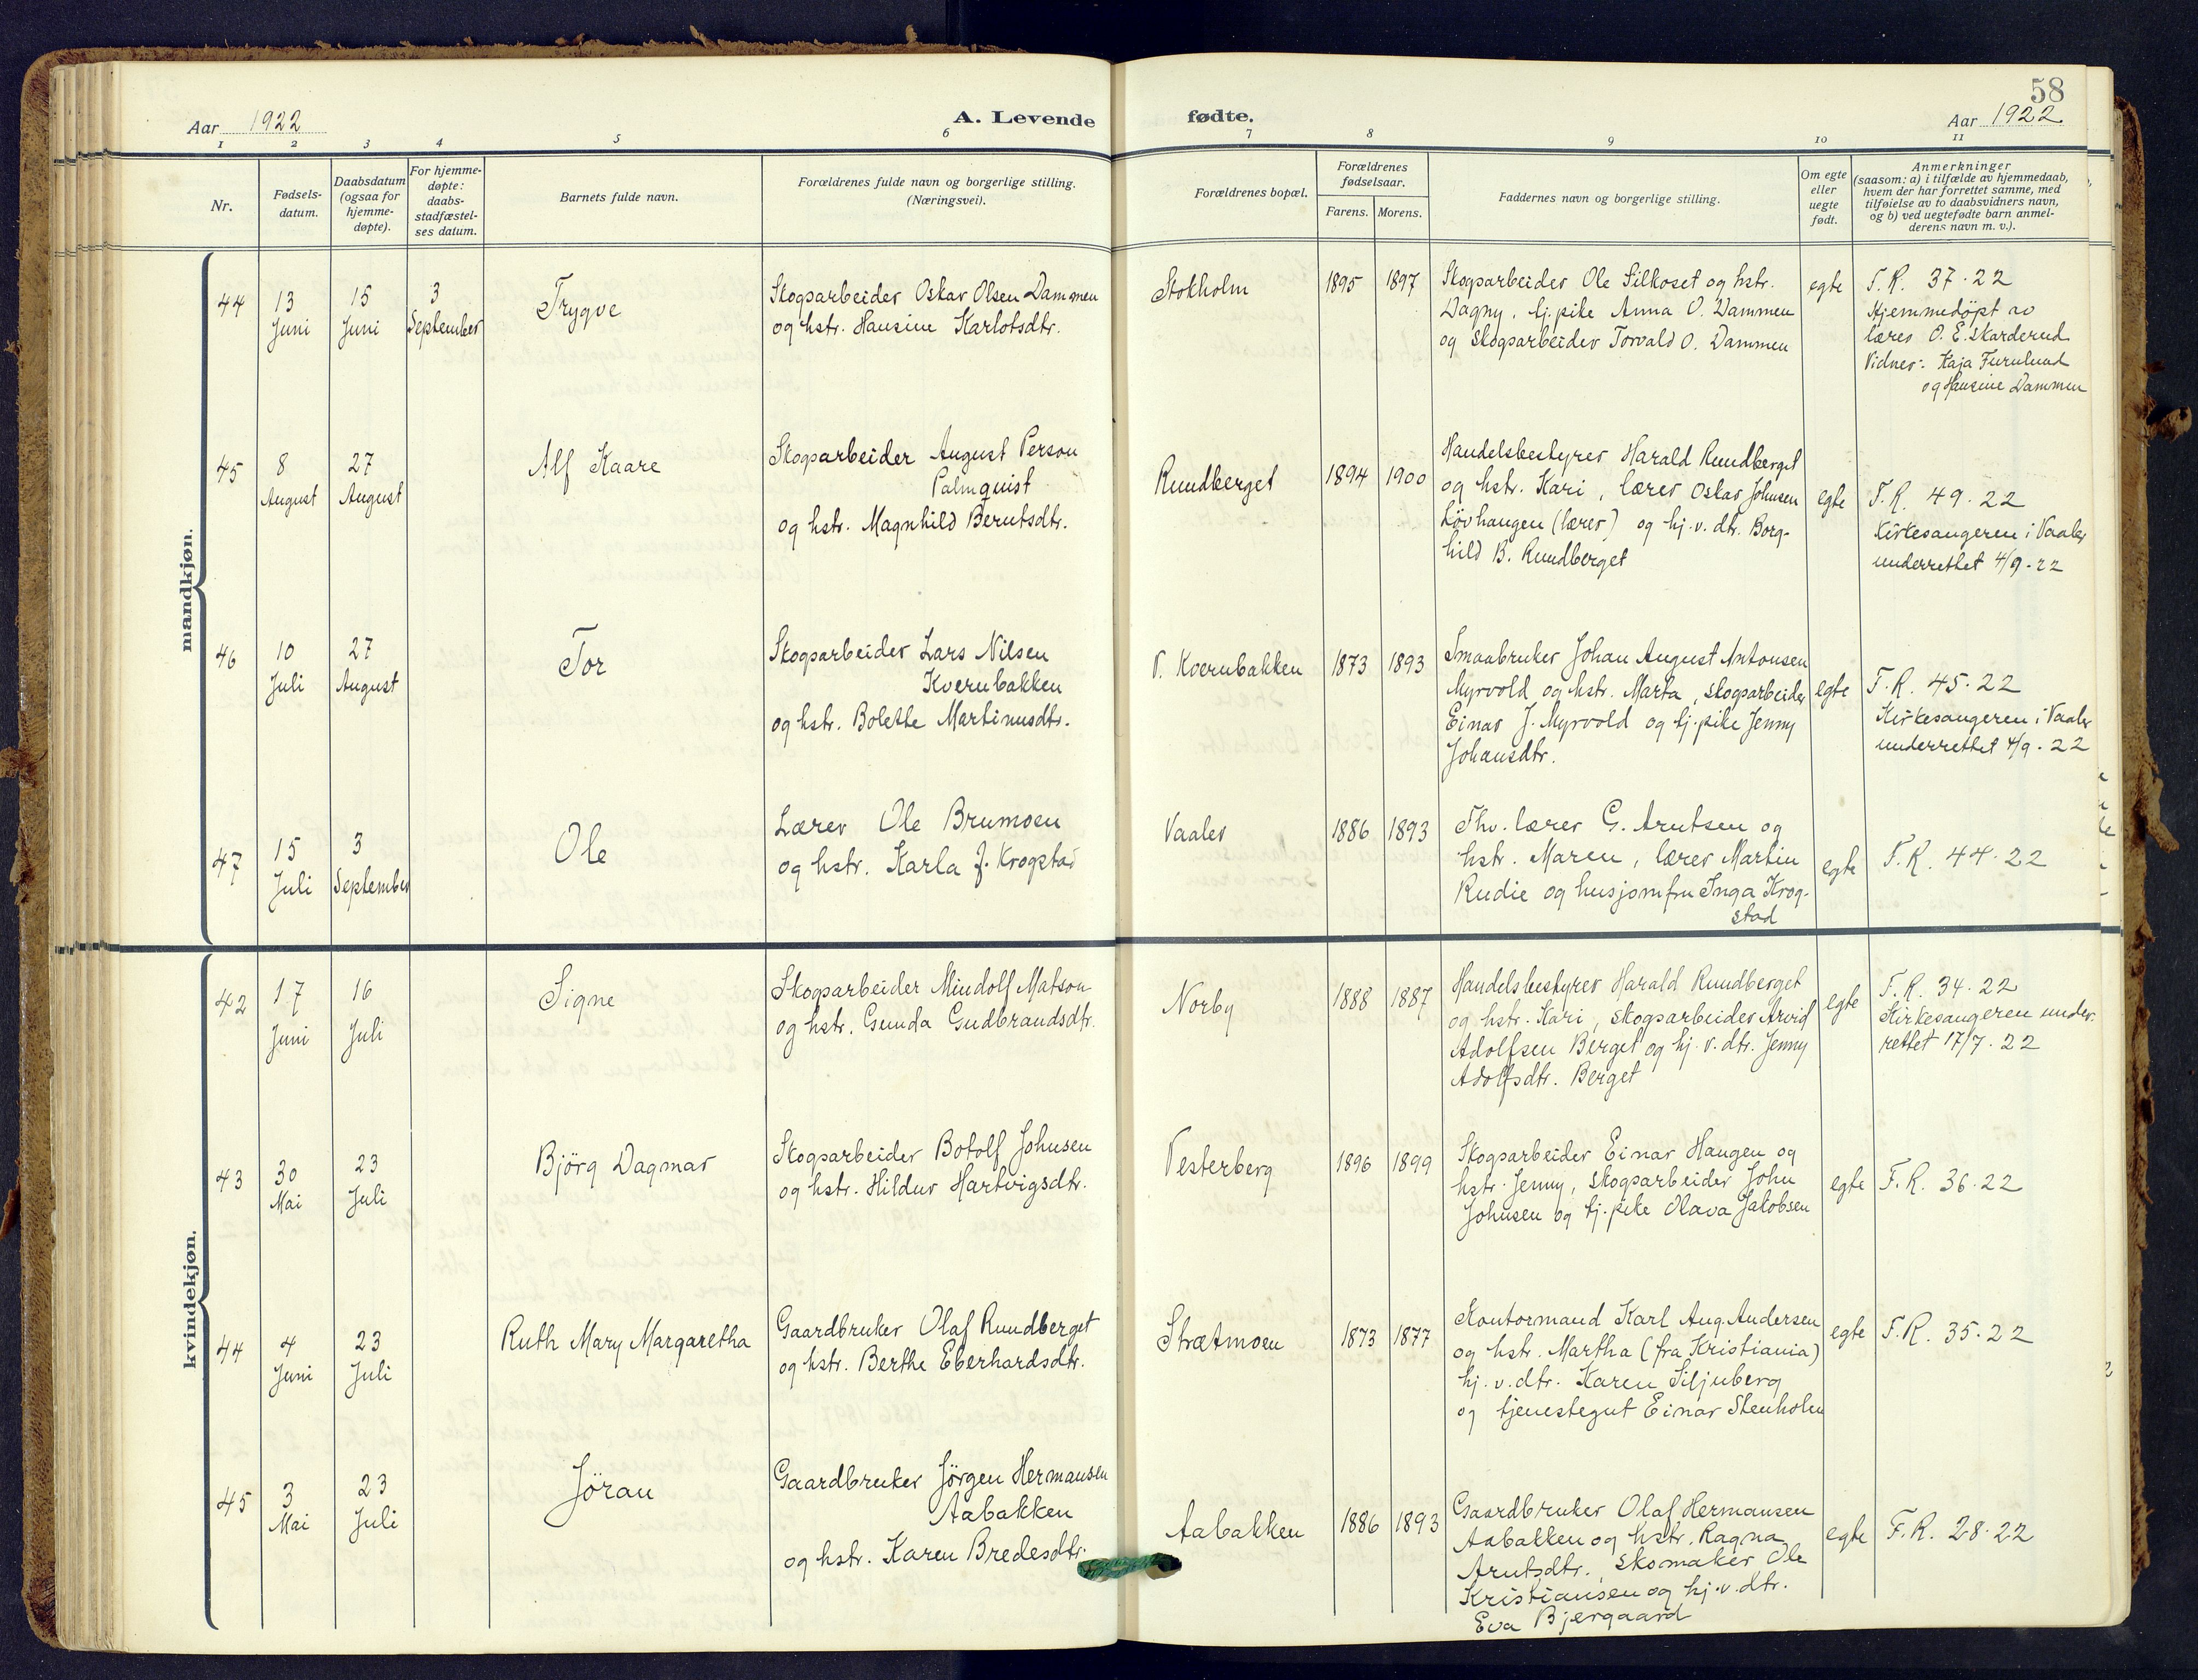 58
Aar 1922
A. Levende
fødte.
Aar 1922.
1 2 3 4 5 6 7 8 9 10 11
Nr.
Fødsels-
datum.
Daabsdatum
(ogsaa for
hjemme-
døpte).
For hjemme-
døpte:
daabs-
stadfæstel-
ses datum.
Barnets fulde navn.
Forældrenes fulde navn og borgerlige stilling.
(Næringsvei).
Forældrenes bopæl.
Forældrenes
fødselsaar.
Farens. Morens.
Faddernes navn og borgerlige stilling.
Om egte
eller
uegte
født.
Anmerkninger
(saasom: a) i tilfælde av hjemmedaab,
hvem der har forrettet samme, med
tilføielse av to daabsvidners navn,
og b) ved uegtefødte barn anmel-
derens navn m. v.).
mandkjøn.
44
13
Juni
15
Juni
3
September
Trygve
Skogsarbeider Oskar Olsen Dammen
og hstr. Hansine Karlotsdtr.
Stokholm
1895
1897
Skogsarbeider Ole Silkoset og hstr.
Dagny, tj.pike Anna O. Dammen
og skogsarbeider Torvald O. Dammen
egte
F.R. 37-22
Hjemmedöpt av
lærer O. E. Skarderud
Vidner: Kaja Furulund
og Hansine Dammen
45
8
August
27
August
Alf Kaare
Skogsarbeider August Person
Palmquist
og hstr. Magnhild Berntsdtr.
Rundberget
1894
1900
Handelsbestyrer Harald Rundberget
og hstr. Kari, lærer Oskar Johnsen
Lövhaugen (lærer) og hj.v. dtr. Borg-
hild B. Rundberget
egte
F.R. 49-22
Kirkesangeren i Vaaler
underrettet 4/9-22
46
10
Juli
27
August
Tor
Skogsarbeider Lars Nilsen
Kvernbakken
og hstr. Bolette Martinusdtr.
V. Kvernbakken
1873
1893
Smaabruker Johan August Antonsen
Myrvold og hstr. Marta, skogsarbeider
Einar J. Myrvold og tj.pike Jenny
Johansdtr.
egte
F.R. 45-22
Kirkesangeren i Vaaler
underrettet 4/9-22
47
15
Juli
3
September
Ole
Lærer Ole Brumoen
og hstr. Karla J. Krogstad
Vaaler
1886
1893
Thv. lærer G. Arntsen og
hstr. Maren, lærer Martin
Rudie og husjomfru Inga Krog-
stad
egte
F.R. 44-22
kvindekjøn.
42
17
Juni
16
Juli
Signe
Skogsarbeider Mindolf Matson
og hstr. Gunda Gudbrandsdtr.
Norby
1888
1887
Handelsbestyrer Harald Rundberget
og hstr. Kari, skogsarbeider Arvid
Adolfsen Berget og hj.v. dtr. Jenny
Adolfsdtr. Berget
egte
F.R. 34-22
Kirkesangeren under-
rettet 17/7-22
43
30
Mai
23
Juli
Björg Dagmar
Skogsarbeider Botolf Johnsen
og hstr. Hildur Hartvigsdtr.
Vesterberg
1896
1899
Skogsarbeider Einar Haugen og
hstr. Jenny, skogsarbeider John
Johnsen og tj.pike Olava Jakobsen
egte
F.R. 36-22
44
4
Juni
23
Juli
Ruth Mary Margaretha
Gaardbruker Olaf Rundberget
og hstr. Berthe Eberhardsdtr.
Strætmoen
1873
1877
Kontormand Karl Aug. Andersen
og hstr. Martha (fra Kristiania)
hj.v. dtr. Karen Siljuberg
og tjenestegut Einar Stenholm
egte
F.R. 35-22
45
3
Mai
23
Juli
Jöran
Gaardbruker Jörgen Hermansen
Aabakken
og hstr. Karen Bredesdtr.
Aabakken
1886
1893
Gaardbruker Olaf Hermansen
Aabakken og hstr. Ragna
Arntsdtr., skomaker Ole
Kristiansen og hj.v. dtr.
Eva Bjergaard
egte
F.R. 28-22